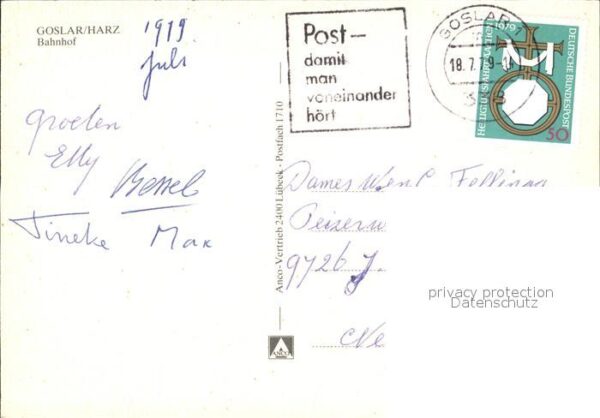 GOSLAR/HARZ
Bahnhof
1979
Juli
groeten
Elly
Bessel
Tineke Max
Post-
damit
man
voneinander
hört
GOSLAR 1
18.7.
1979
HEILIGTUMSFAHRT AACHEN
DEUTSCHE BUNDESPOST
50
Anco-Vertrieb 2400 Lübeck · Postfach 1710
ANCO
Dames
9726 J.
privacy protection
Datenschutz